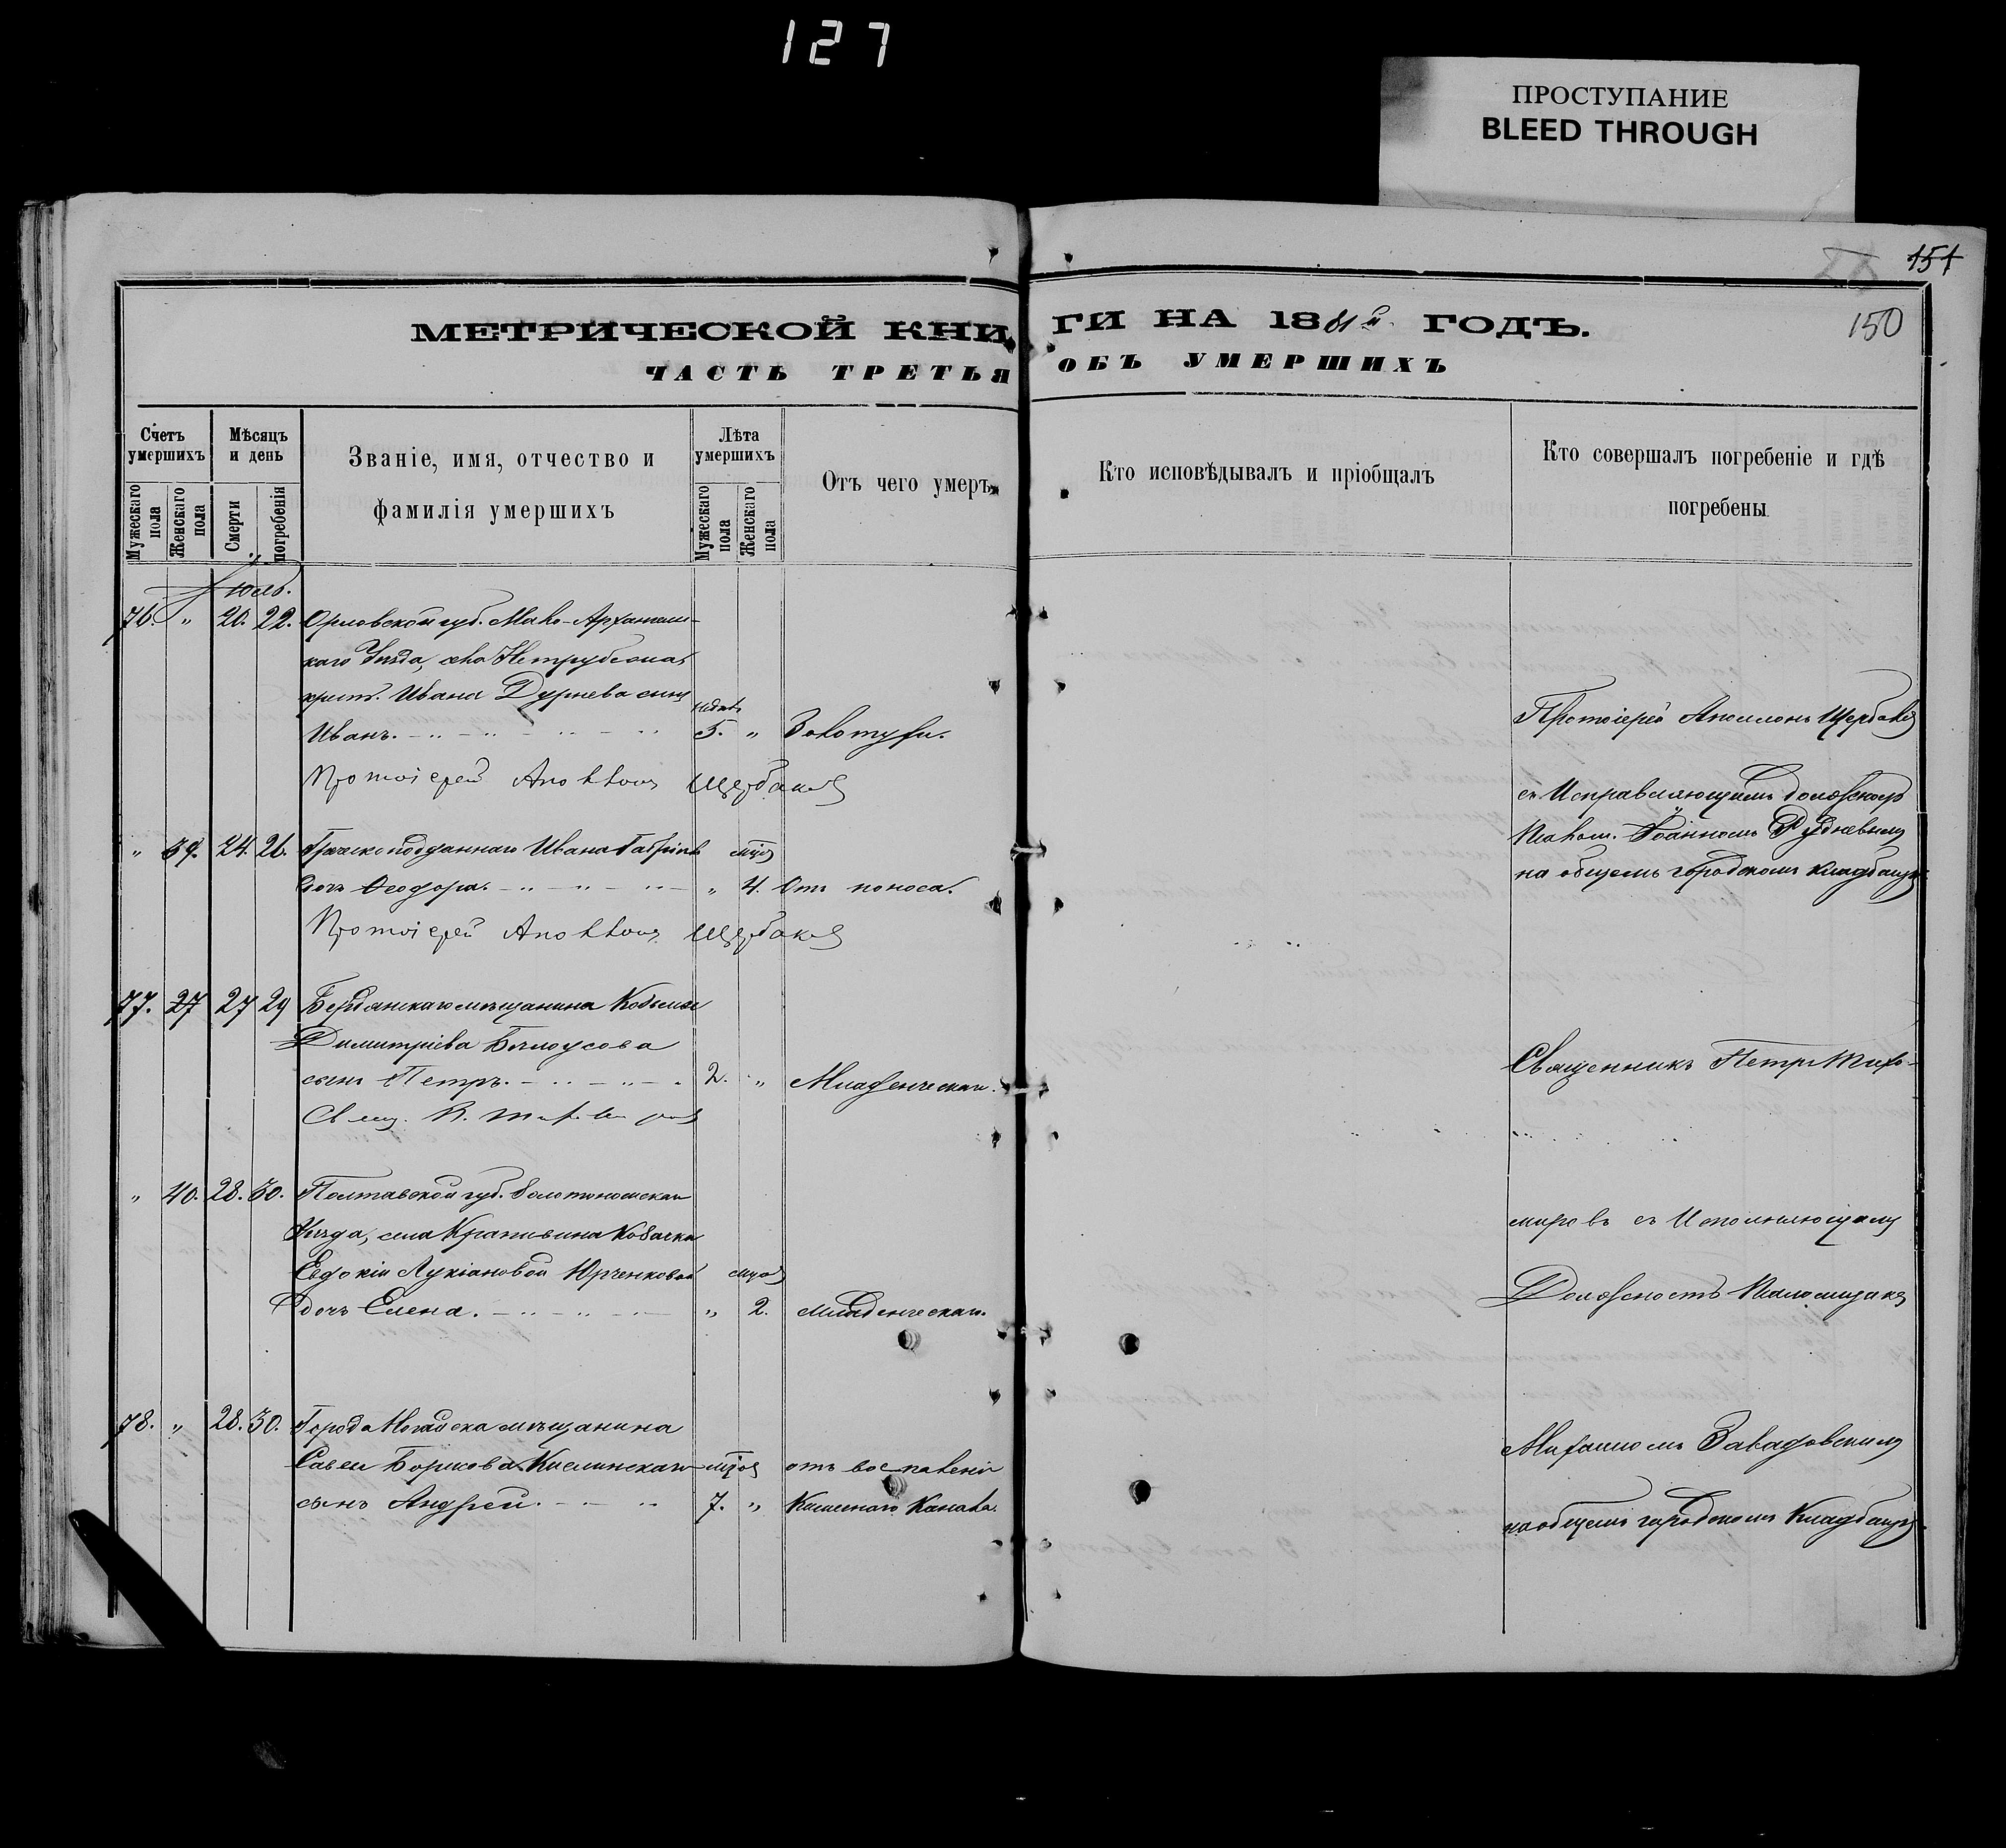 127
ПРОСТУПАНИЕ
BLEED THROUGH
151
150
МЕТРИЧЕСКОЙ КНИГИ НА 1881й ГОДЪ.
ЧАСТЬ ТРЕТЬЯ ОБЪ УМЕРШИХЪ
Счетъ умершихъ
Мужескаго пола
Женскаго пола
Мѣсяцъ и день
Смерти
погребенія
Званіе, имя, отчество и
фамилія умершихъ
Лѣта умершихъ
Мужескаго пола
Женскаго пола
Отъ чего умеръ
Кто исповѣдывалъ и пріобщалъ
Кто совершалъ погребеніе и гдѣ
погребены
Юль.
76. " 20. 22. Орловской губ. Мало-Архангель-
каго Уѣзда, села
крест. Ивана Дурнева сынъ
Иванъ. 5. " Золотухи.
Протоіерей Аполлонъ Щербаковъ
" 39. 24. 26. Греческоподданнаго Ивана
дочь Феодора. " 4. Отъ поноса.
Протоіерей Аполлонъ Щербаковъ
77. 27 27 29 Бердянскаго мѣщанина
Димитріева Бѣлоусова
сынъ Петръ. 2. " Младенческая.
Свящ. П. Тихомировъ
" 40. 28. 30. Полтавской губ. Золотоношскаго
Уѣзда, села Крапивина Козачки
Евдокіи Лукіановой Юрченковой
дочь Елена. " 2. Младенческая.
78. " 28. 30. Города Ногайска мѣщанина
Савы Борисова Кислинскаго отъ воспаленія
сынъ Андрей. 7. " Кишечнаго Канала.
Протоіерей Аполлонъ Щербаковъ
съ Исправляющимъ должность
Псалом. Іоанномъ Рудневымъ
на общемъ городскомъ кладбищѣ.
Священникъ Петръ Тихо-
мировъ съ Исполняющимъ
Должность Псаломщика
Михаиломъ Завадовскимъ
на общемъ городскомъ Кладбищѣ.